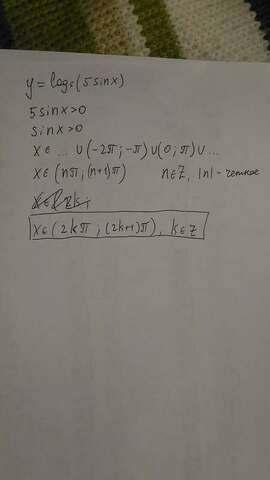 y = log₅(5sinx)
5sinx>0
sinx>0
x∈ ... ∪(-2π;-π)∪(0;π)∪ ...
x∈(nπ;(n+1)π) n∈Z, |n|-четное
x∈(2kπ;(2k+1)π), k∈Z